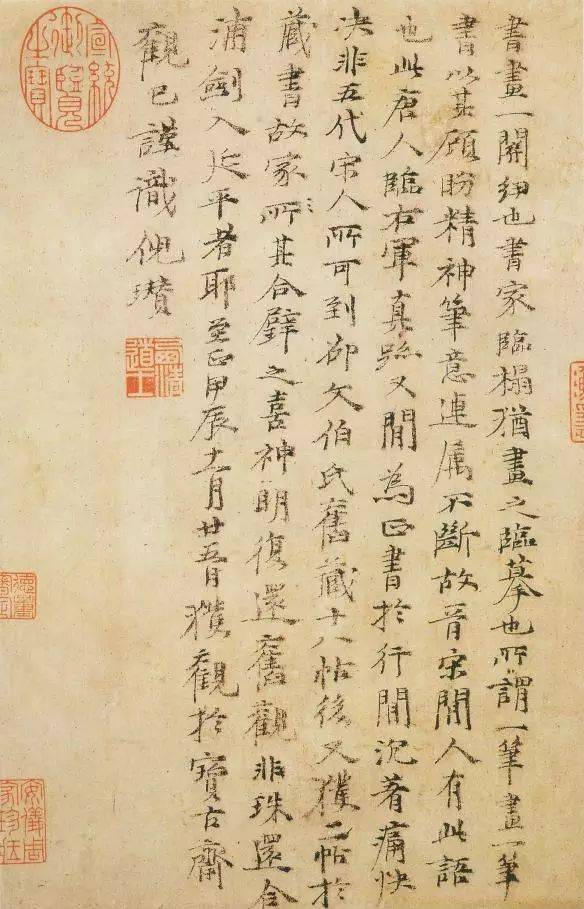 書畫一關紐也書家臨榻猶畫之臨摹也所謂一筆畫一筆
書以其顧盼精神筆意連属不斷故晉宋間人有此語
也此唐人臨右軍真跡又間為正書於行間沉著痛快
决非五代宋人所可到卻文伯氏舊藏十八帖後又獲二帖於
蔵書故家所其合璧之喜神明復還舊觀非珠還合
浦劍入延平者耶至正甲辰十一月廿五日獲觀於寶古齋
觀已謹識倪瓚
宣統御覽之寶
安儀周家珍藏